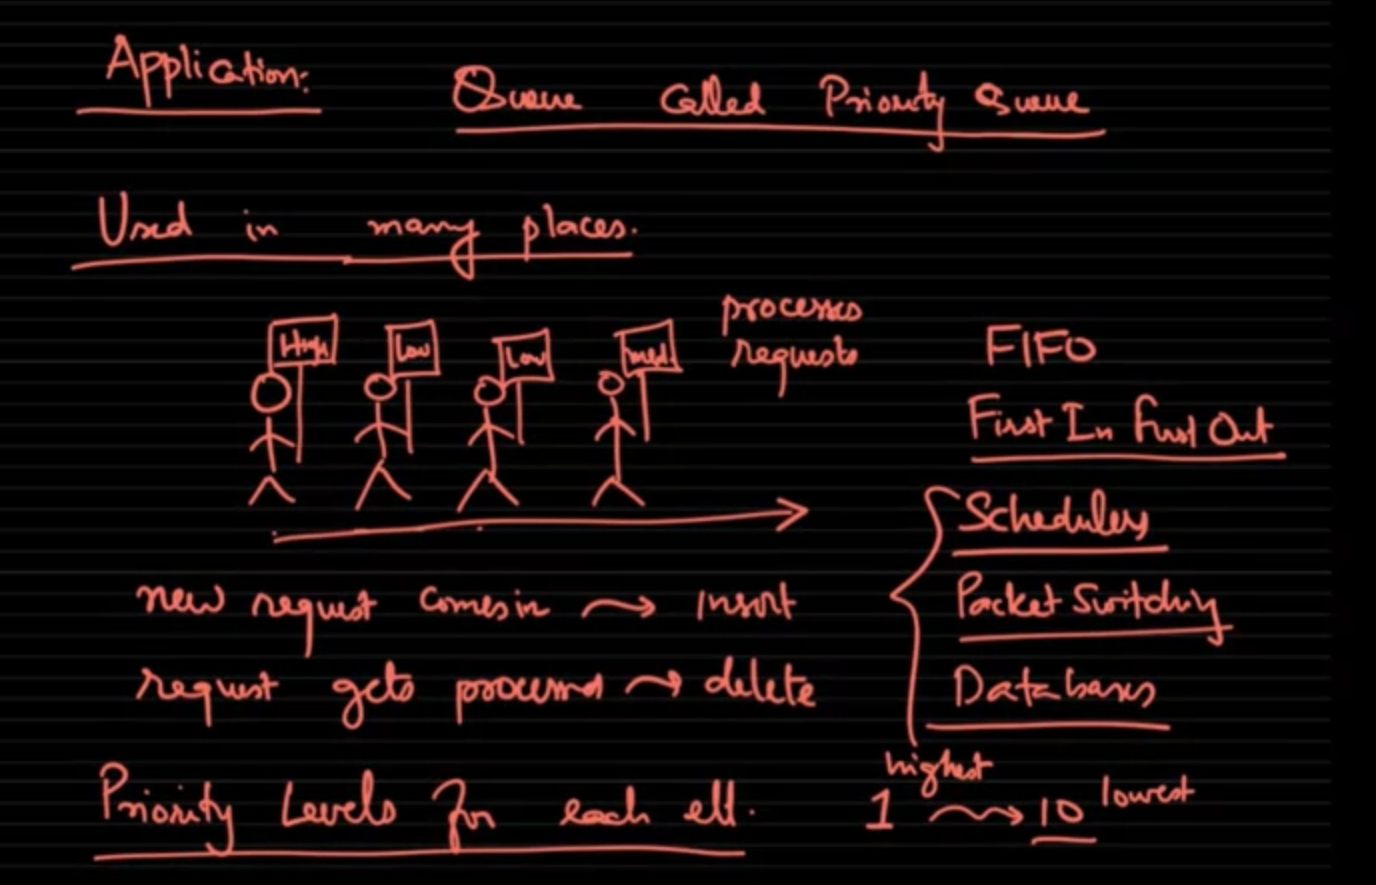 Application:
Queue Called Priority Queue
Used in many places.
High
Low
Low
med.
processes
requests
FIFO
First In First Out
Schedulers
Packet Switching
Databases
new request comes in → insert
request gets processed → delete
Priority Levels for each elt.
highest
1 → 10 lowest